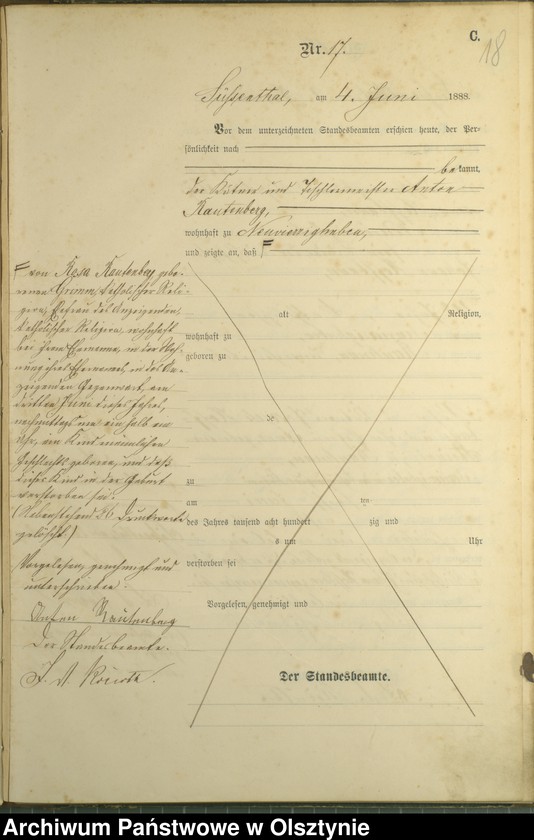 C.
18
Nr. 17.
Süssenthal, am 4. Juni 1888.
Vor dem unterzeichneten Standesbeamten erschien heute, der Per-
sönlichkeit nach
be kannt,
der Kätner und Tischlermeister Anton
Rautenberg,
wohnhaft zu Neuvierzighuben,
und zeigte an, daß
von Rosa Rautenberg gebo-
renen Grimm, katholischer Reli-
gion, Ehefrau des Anzeigenden,
katholischer Religion, wohnhaft
bei ihrem Ehemanne, in der Woh-
nung ihres Ehemannes, in des An-
zeigenden Gegenwart, am
dritten Juni dieses Jahres,
nachmittags um ein halb ein
Uhr, ein Kind männlichen
Geschlechts geboren, und daß
dieses Kind in der Geburt
verstorben sei.
(Nebenstehend 26 Druckworte
gelöscht.)
Vorgelesen, genehmigt und
unterschrieben:
Anton Rautenberg
Der Standesbeamte.
alt Religion,
wohnhaft zu
geboren zu
de
zu
am un-
des Jahres tausend acht hundert zig und
s um Uhr
verstorben sei
Vorgelesen, genehmigt und
Der Standesbeamte.
Archiwum Państwowe w Olsztynie